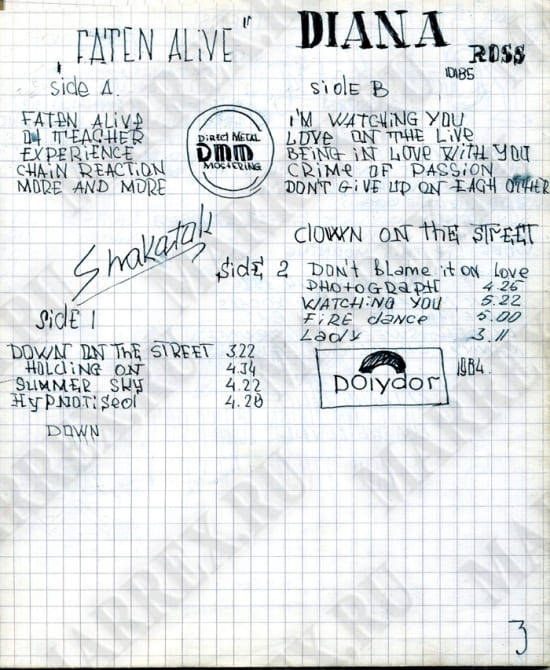 "FATEN ALiVE"
DIANA ROSS
1985
side A.
FATEN ALiVE
OH TEACHER
EXPERIENCE
CHAIN REACTION
MORE AND MORE
DiRECT METAL
DMM
MOSTERING
side B
I'M WATCHING YOU
LOVE ON THE LiVE
BEING iN LOVE WiTH YOU
CRiME OF PASSiON
DON'T GiVE UP ON EACH OTHER
Shakatak
ClOWN ON the STREET
Side 1
DOWN ON THE STREET 3.22
HOLdiNG ON 4.34
SUMMER SKY 4.22
HYPNOTiSed 4.28
DOWN
Side 2
DON'T Blame it ON LOVE
PHOtOGRaPH 4.25
WATCHiNG YOU 5.22
FiRE dance 5.00
Lady 3.11
POlydor
1984.
3
MARREX.RU